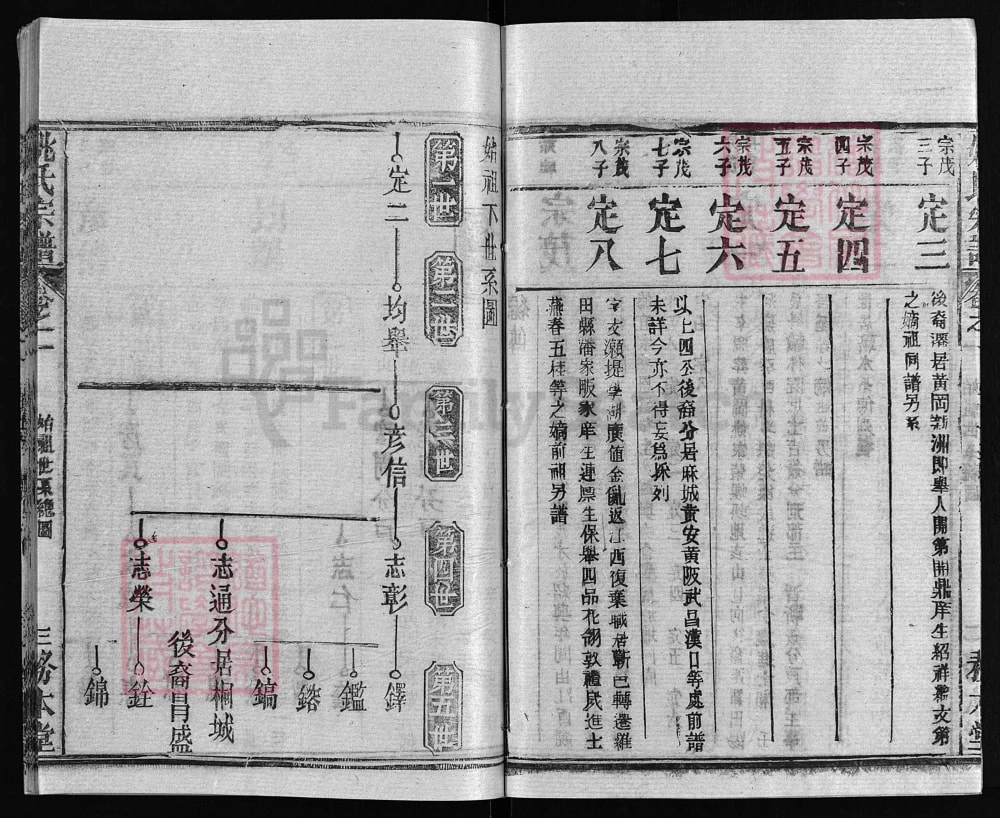 宗茂三子
定三
後裔譜居黃岡新洲即舉人開第開鼎庠生紹祥鑑文第
之嫡祖同譜另系
宗茂四子
定四
宗茂五子
定五
宗茂六子
定六
宗茂七子
定七
以上四公後裔分居麻城黃安黃陂武昌漢口等處前譜
未詳今亦不得妄為採列
宗茂八子
定八
字文灝提學湖廣值金亂返江西復葉職居蘄巳轉遷羅
田縣潘家畈家庠生連票生保舉四品花翎敦禮民進士
燕春五桂等之嫡前祖另譜
始祖下世系圖
第一世
第二世
第三世
第四世
第五世
定二
均舉
彥信
志彰
鐸
鑑
鎔
鎬
志通分居桐城
後裔昌盛
志榮
銓
錦
姚氏宗譜
卷之一
始祖世系總圖
三
務本堂